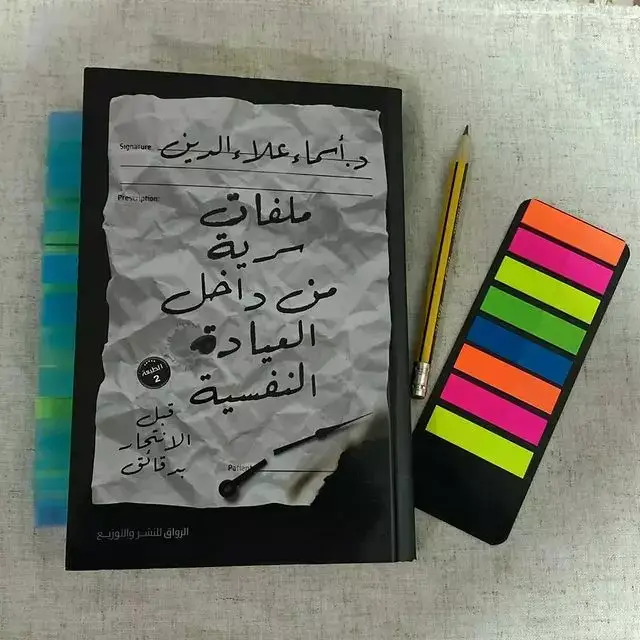 Signature
د. أسماء علاء الدين
Prescription:
ملفات
سرية
من داخل
العيادة
النفسية
الطبعة
2
قبل
الانتحار
بدقائق
Patient
الرواق للنشر والتوزيع